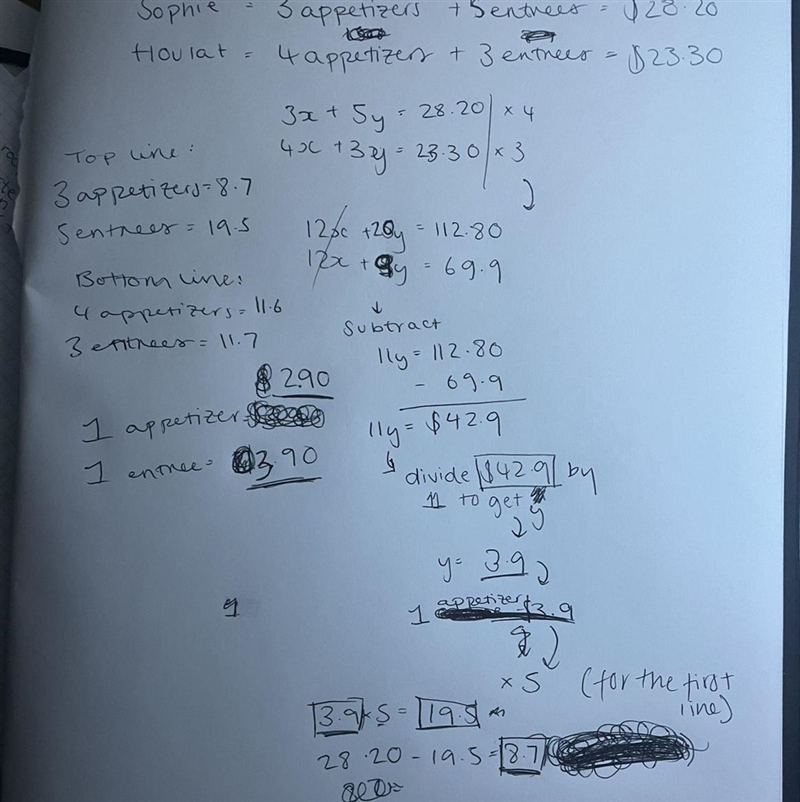 Sophie = 3 appetizers + 5 entrees = $28.20
Houlat = 4 appetizers + 3 entrees = $23.30
3x + 5y = 28.20 | × 4
4x + 3y = 23.30 | × 3
Top line:
3 appetizers = 8.7
5 entrees = 19.5
Bottom line:
4 appetizers = 11.6
3 entrees = 11.7
$2.90
1 appetizer =
1 entree = 3.90
12x + 20y = 112.80
12x + 9y = 69.9
↓
Subtract
11y = 112.80
- 69.9
11y = $42.9
↳ divide $42.9 by
11 to get y
↓
y = 3.9
1 appetizer $3.9
× 5 (for the first
line)
3.9 × 5 = 19.5
28.20 - 19.5 = 8.7